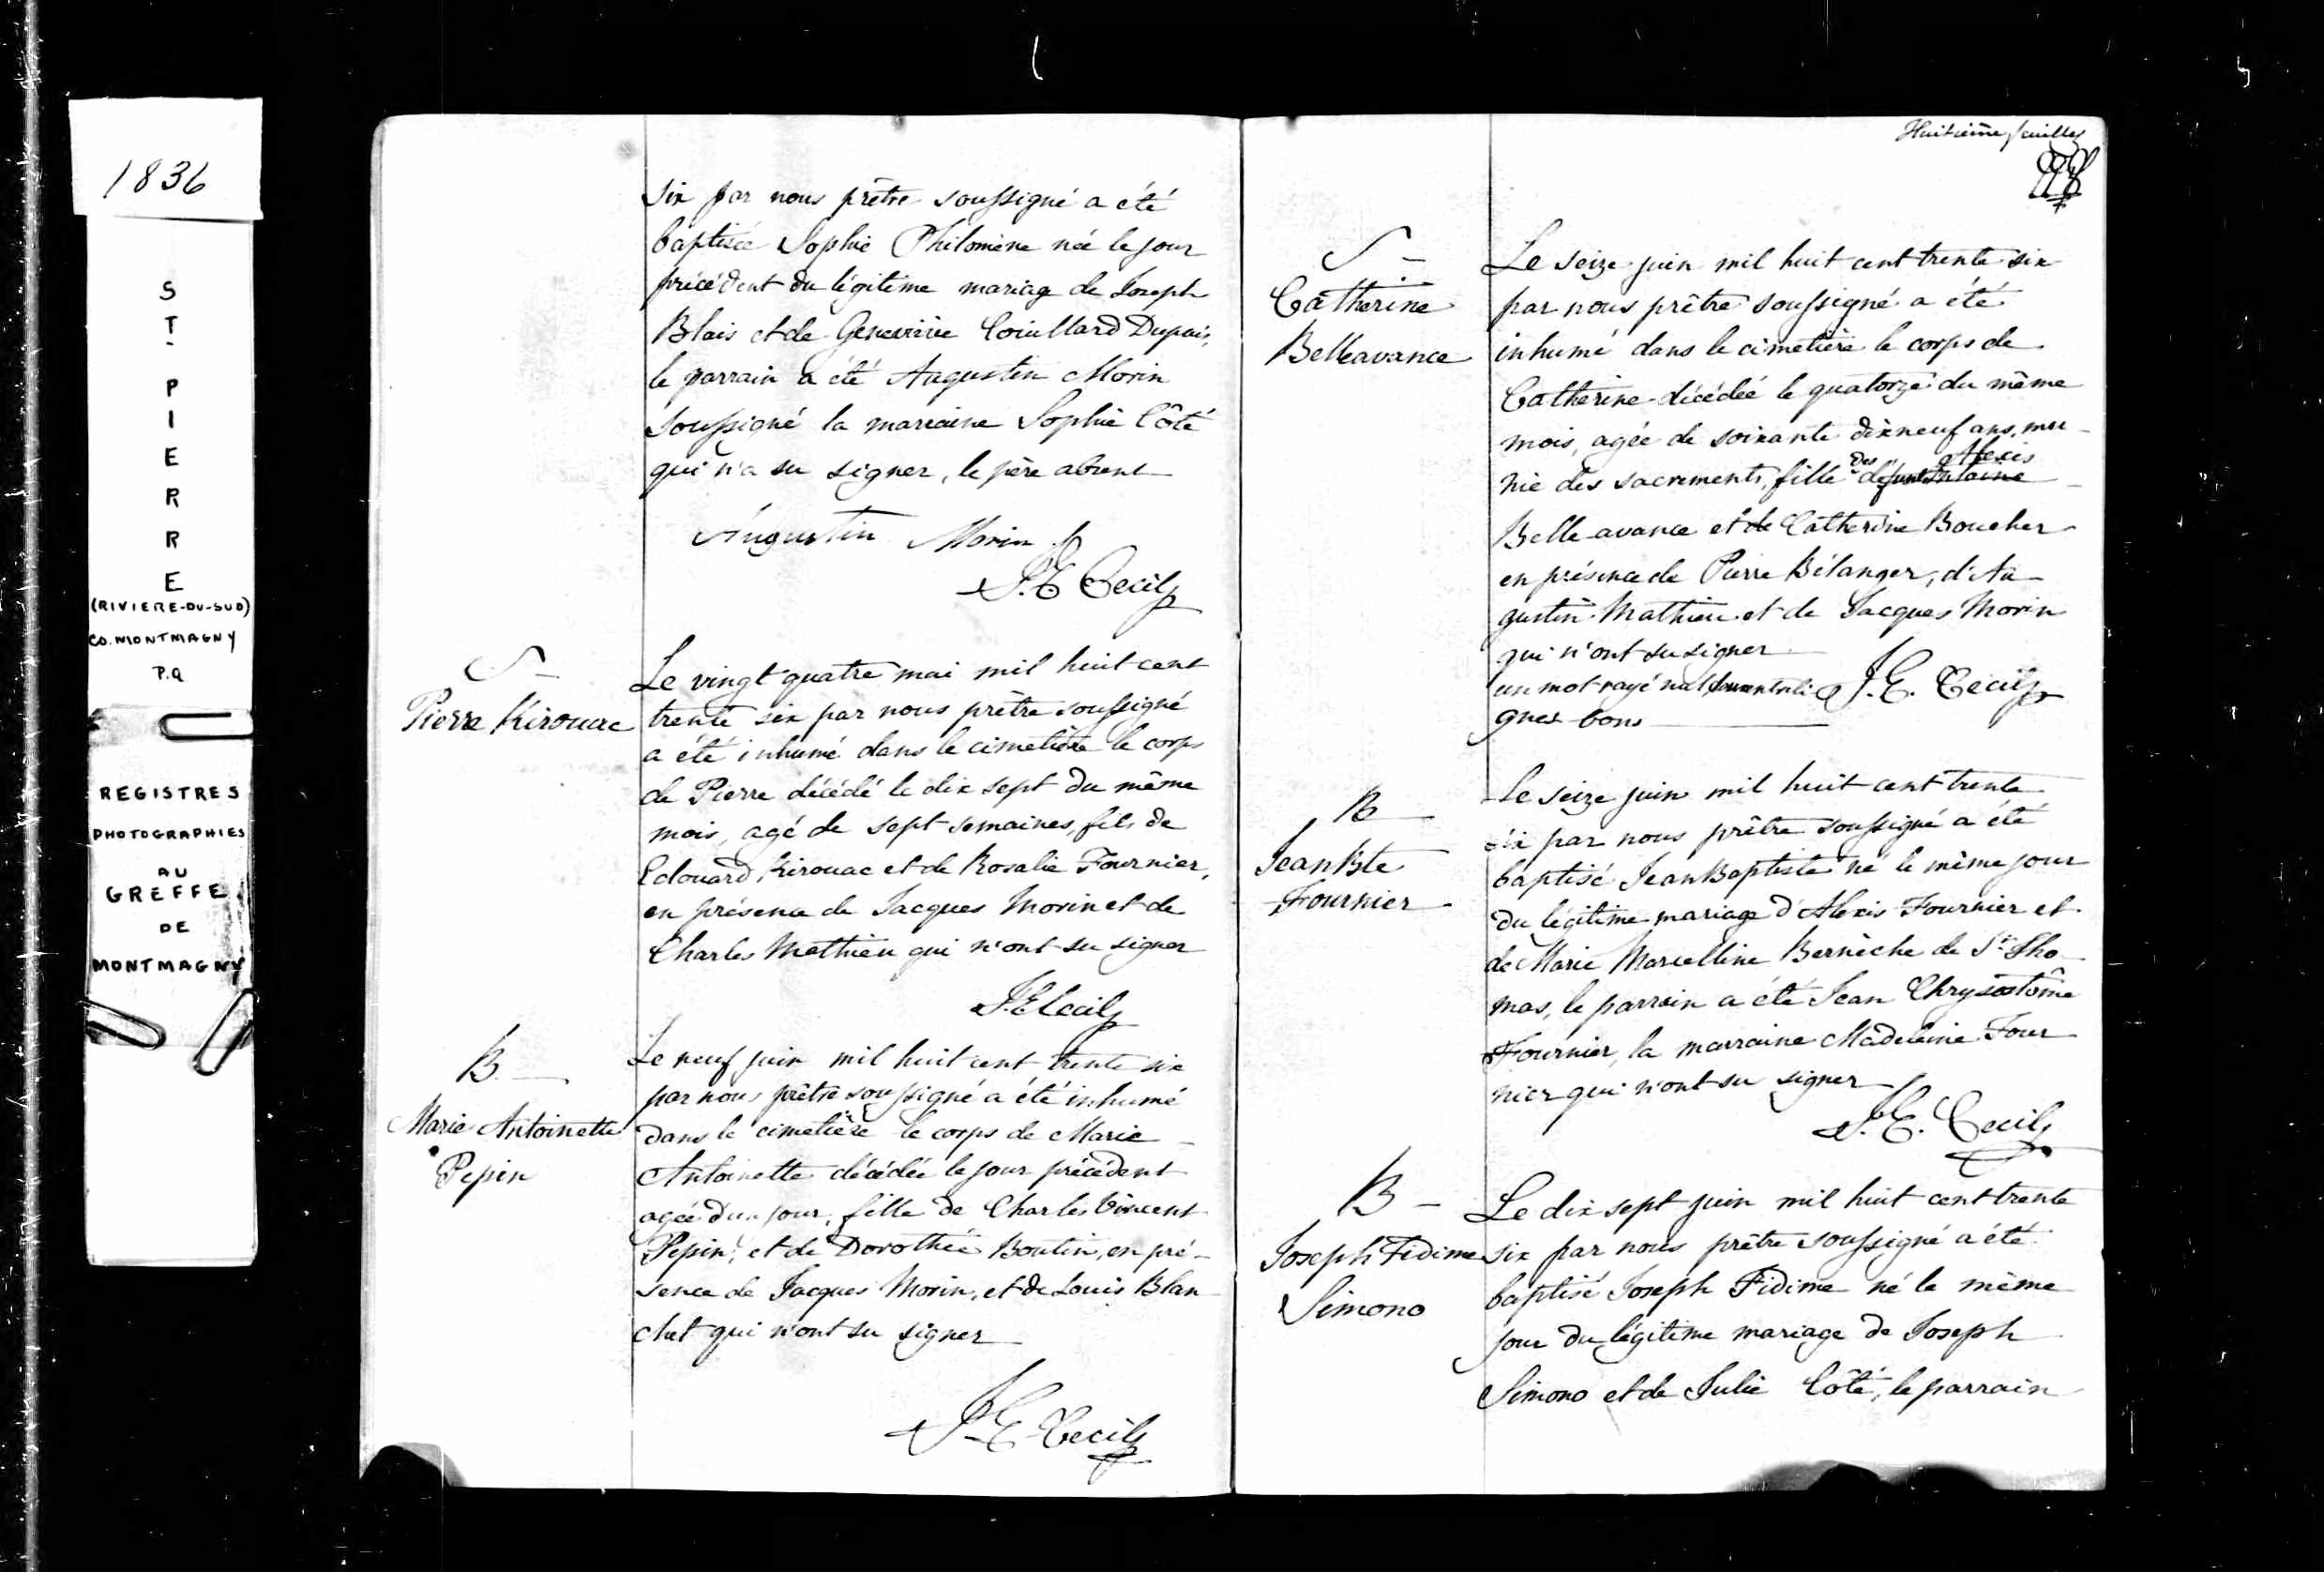 1836
ST.
PIERRE
(RIVIERE-DU-SUD)
CO. MONTMAGNY
P.Q
REGISTRES
PHOTOGRAPHIES
AU
GREFFE
DE
MONTMAGNY
six par nous prêtre soussigné a été
baptisée Sophie Philomène née le jour
précédent du légitime mariage de Joseph
Blais et de Geneviève Couillard Dupuis,
le parrain a été Augustin Morin
soussigné la marraine Sophie Côté
qui n'a su signer, le père absent
Augustin Morin
J. E Cecil
S
Pierre Kirouac
Le vingt quatre mai mil huit cent
trente six par nous prêtre soussigné
a été inhumé dans le cimetière le corps
de Pierre décédé le dix sept du même
mois, agé de sept semaines, fils de
Edouard Kirouac et de Rosalie Fournier,
en présence de Jacques Morin et de
Charles Mathieu qui n'ont su signer
J. E Cecil
B
Marie Antoinette
Pepin
Le neuf juin mil huit cent trente six
par nous prêtre soussigné a été inhumé
dans le cimetière le corps de Marie
Antoinette décédée le jour précédent
agée d'un jour, fille de Charles Vincent
Pepin, et de Dorothée Boutin, en pré-
sence de Jacques Morin, et de Louis Blan
chet qui n'ont su signer
J. E. Cecil
Huitième feuillet
S
Catherine
Belleavance
Le seize juin mil huit cent trente six
par nous prêtre soussigné a été
inhumé dans le cimetière le corps de
Catherine décédée le quatorze du même
mois, agée de soixante dixneuf ans, mu-
nie des sacrements, fille des défunts Alexis
Belleavance et de Catherine Boucher
en présence de Pierre Bélanger, d'Au-
gustin Mathieu et de Jacques Morin
qui n'ont su signer
un mot rayé nul J. E. Cecil
gnes bons
B
Jean Bte
Fournier
Le seize juin mil huit cent trente
six par nous prêtre soussigné a été
baptisé Jean Baptiste né le même jour
du légitime mariage d'Alexis Fournier et
de Marie Marcelline Bernèche de St Tho-
mas, le parrain a été Jean Chrysostôme
Fournier, la marraine Madeleine Four
nier qui n'ont su signer
J. E. Cecil
B
Joseph Fidime
Simono
Le dix sept juin mil huit cent trente
six par nous prêtre soussigné a été
baptisé Joseph Fidime né le même
jour du légitime mariage de Joseph
Simono et de Julie Côté, le parrain